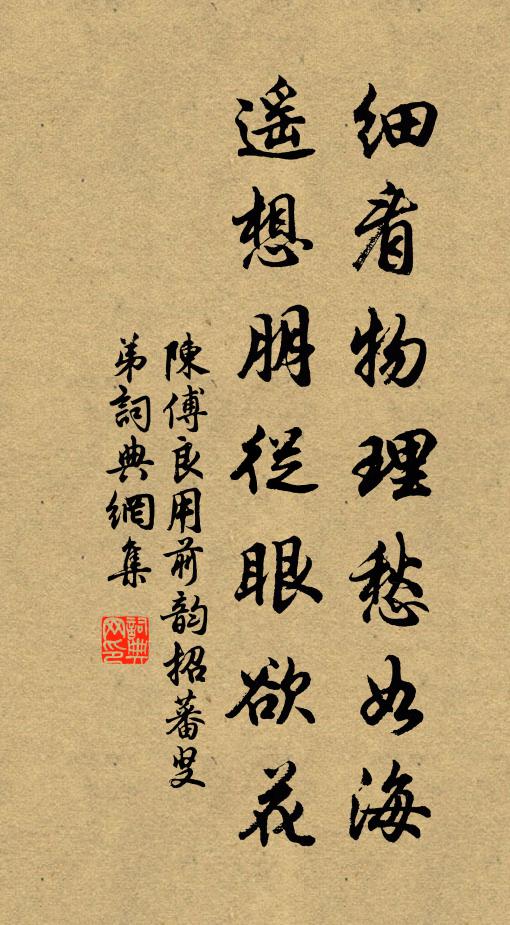 細看物理愁如海
遥想朋從眼欲花
陳傅良用前韵招蕃叟
弟詞典網集
詞典網印